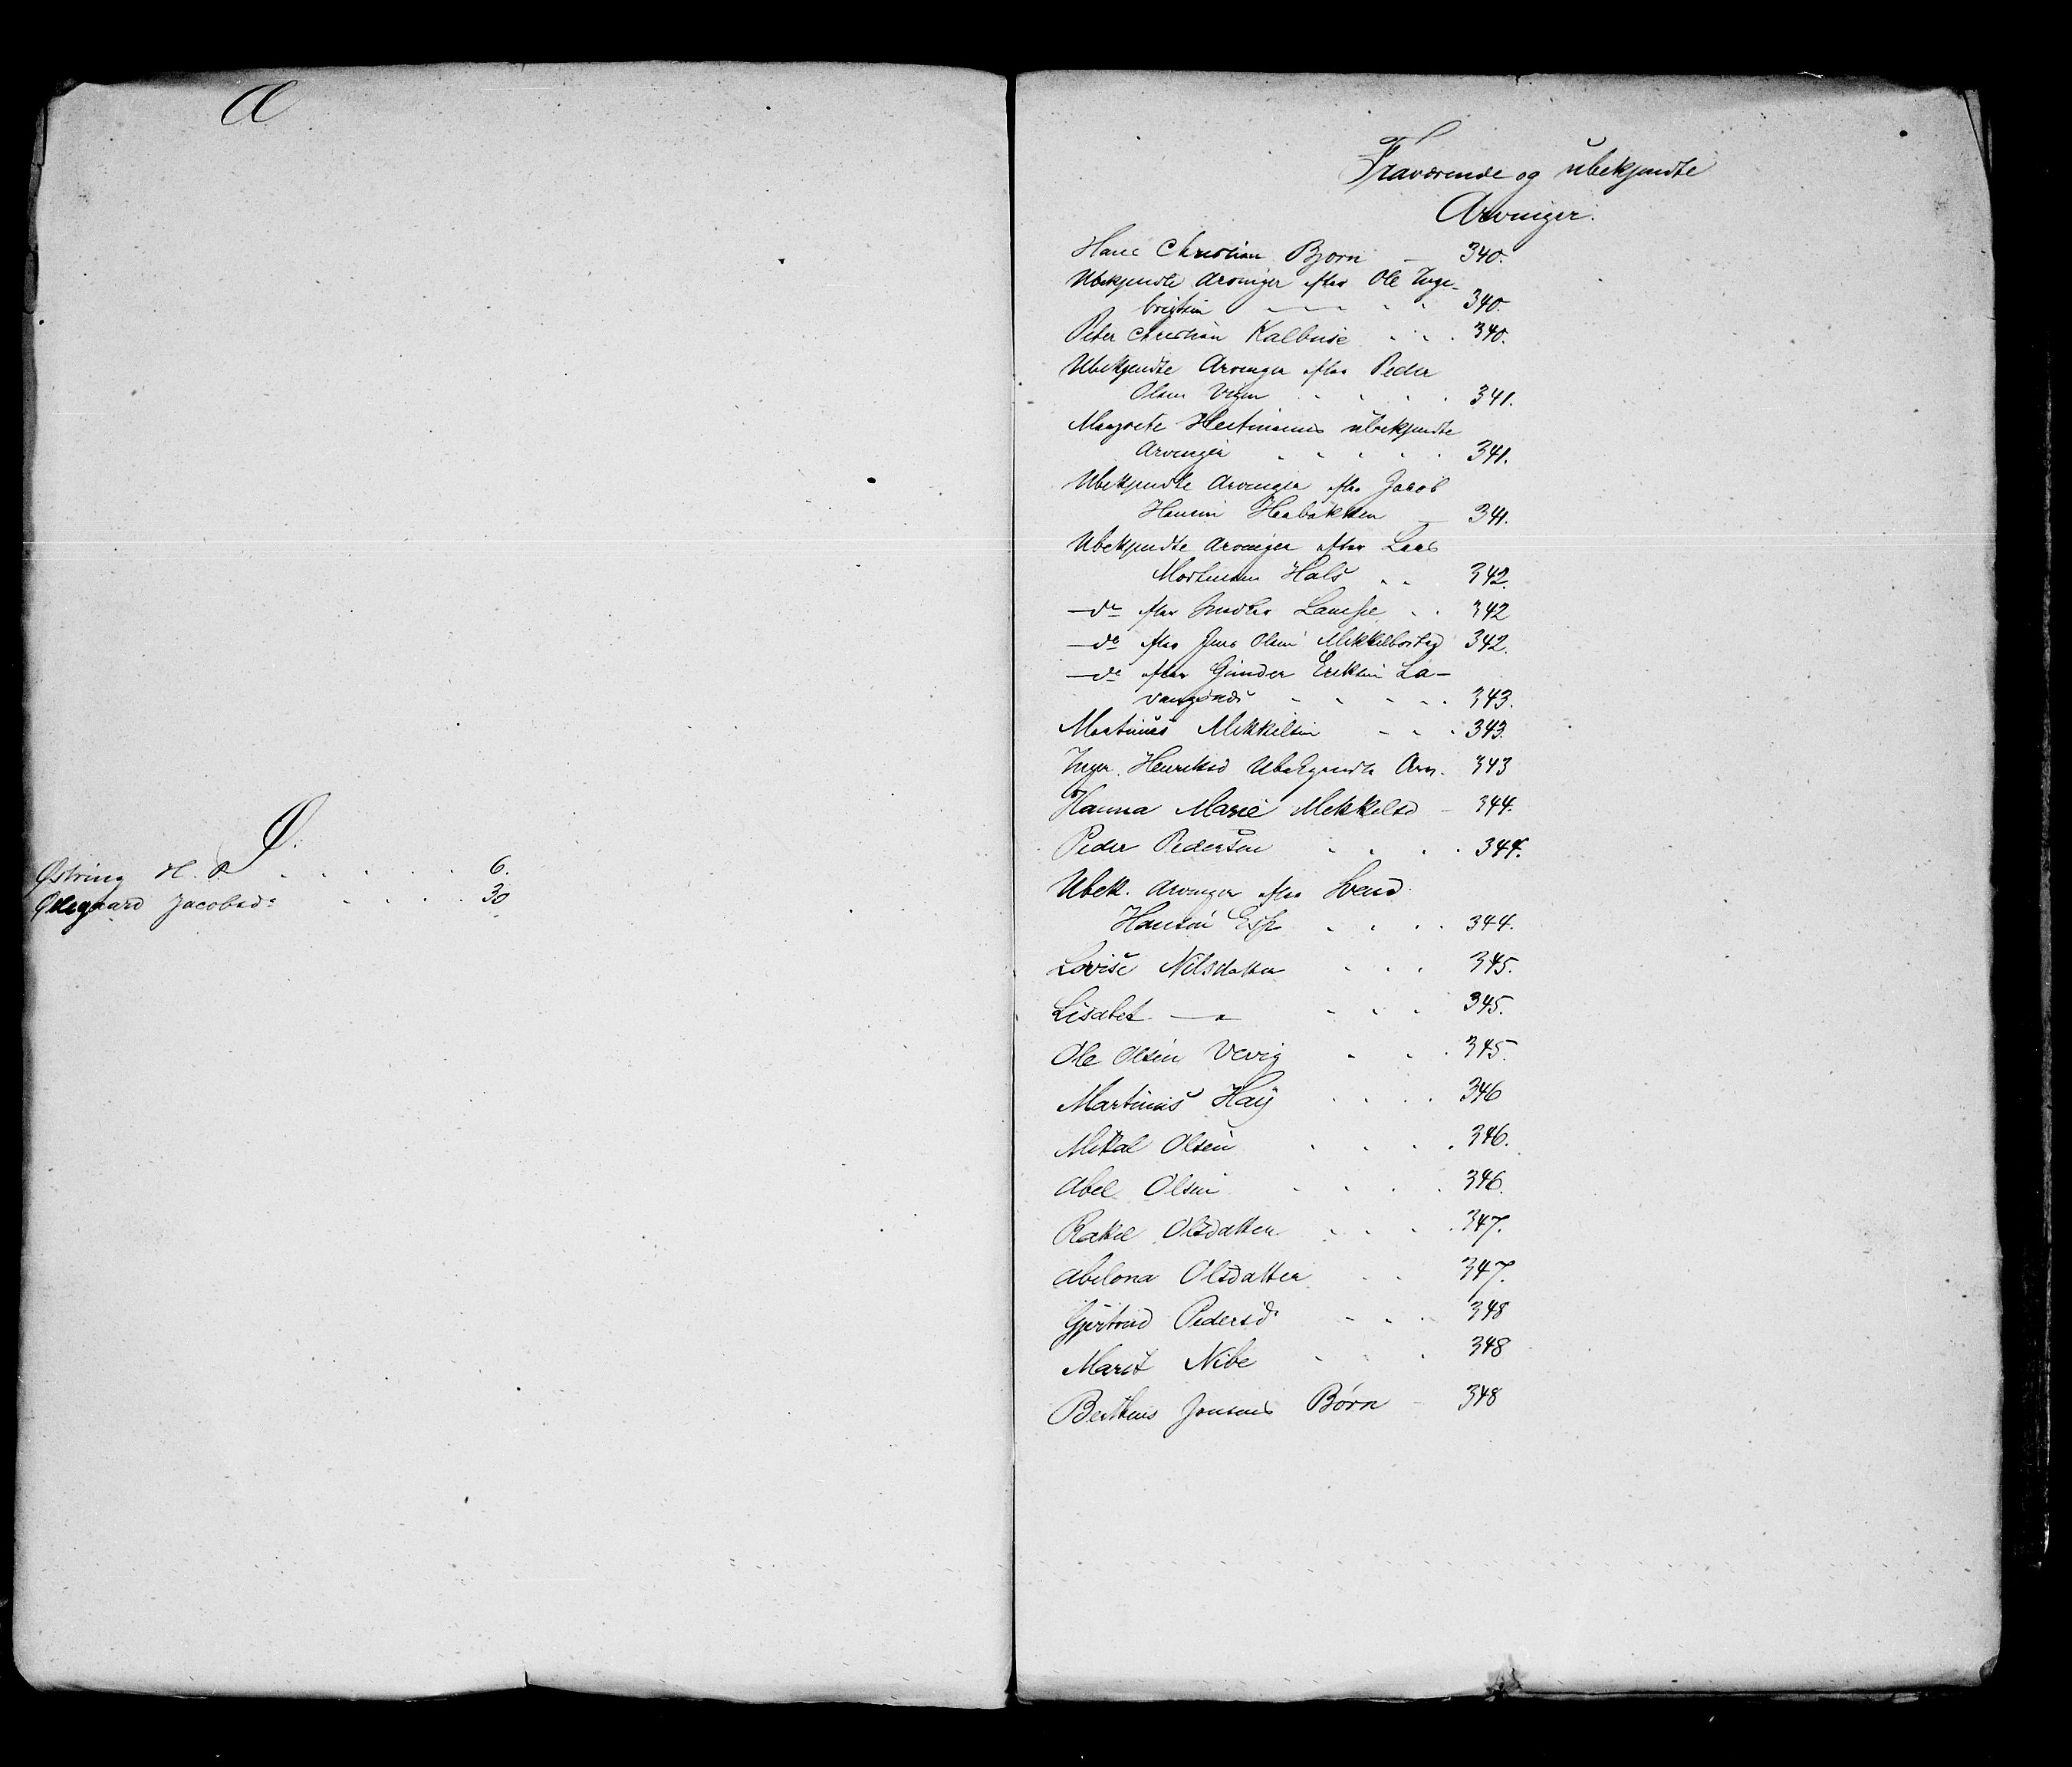 Æ
Ø.
Østring H. P. 6.
Ødegaard Jacobsd: 30
Fraværende og ubekjendte
Arvinger.
Hans Christian Bjørn — 340.
Ubekjendte Arvinger efter Ole Inge-
brigtsen 340.
Peter Christian Kalbuse 340.
Ubekjendte Arvinger efter Peder
Olsen 341.
Margrete ubekjendte
Arvinger 341.
Ubekjendte Arvinger efter Jacob
Hansen 341.
Ubekjendte Arvinger efter Lars
Mortensen Hals 342.
— do efter 342
— do efter Jens Olsen Mikkelbostad 342.
— do efter Gunder Eriksen La-
vangsnæs 343.
Martinus Mikkelsen 343.
Inger Henriksd Ubekjendte Arv. 343
Hanna Marie Mikkelsd — 344.
Peder Pedersen 344.
Ubek. Arvinger efter Svend
Hansen 344.
Lovise Nilsdatter 345.
Lisabet — " — 345.
Ole Olsen Vevig 345.
Martinus Haij 346
Mikal Olsen 346.
Abel Olsen 346.
Rakel Olsdatter 347.
Abelona Olsdatter 347.
Gjertrud Pedersd: 348
Marit Nibe 348
Berthius Jonsens Børn — 348